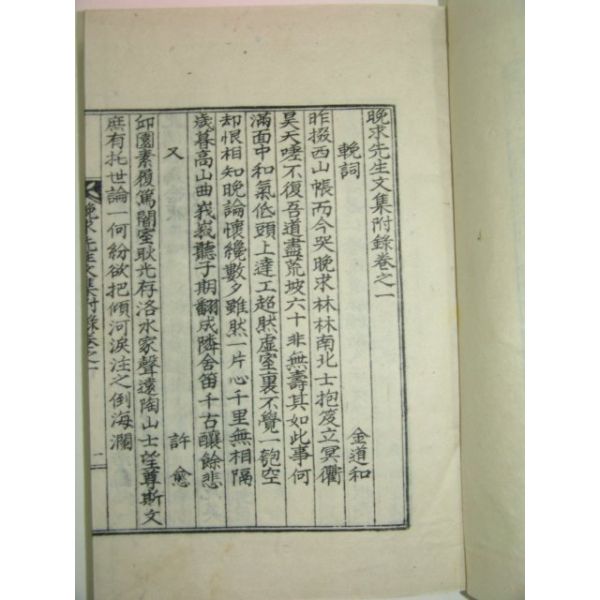 晩求先生文集附錄卷之一
輓詞 金道和
昨掇西山帳而今哭晩求林林南北士抱笈立冥衢
昊天嘆不復吾道盡荒坡六十非無壽其如此事何
滿面中和氣低頭上達工超然虛室裏不覺一瓢空
却恨相知晩論懷纔數夕雖然一片心千里無相隔
歲暮高山曲峩峩聽子期翻成隣舍笛千古釀餘悲
又 許愈
邱園素履篤闇室耿光存洛水家聲遠陶山士望尊斯文
庶有托世論一何紛欲把傾河淚注之倒海瀾
晩求先生文集附錄卷之一 一